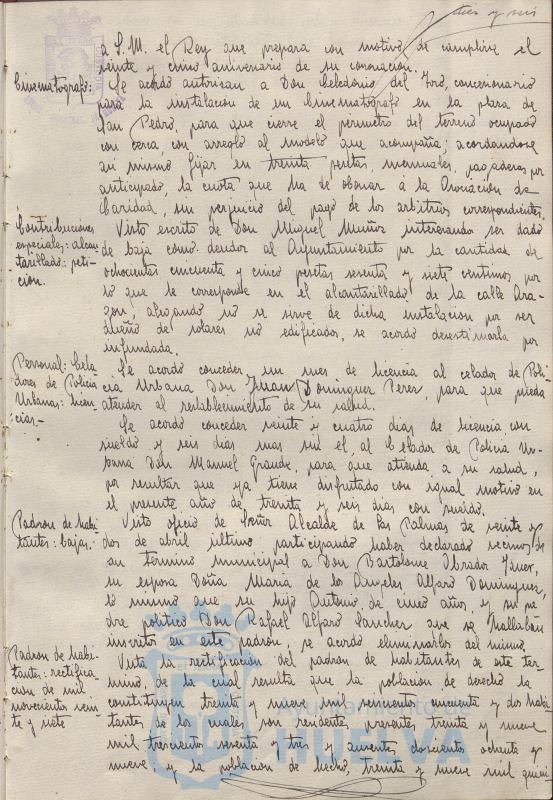 tres y seis
a S.M. el Rey que prepara con motivo de cumplirse el
veinte y cinco aniversario de su coronación.
Cinematografo:
Se acordo autorisar a Don Celedonio del Toro, concesionario
para la instalacion de un Cinematografo en la plaza de
San Pedro, para que cierre el perimetro del terreno ocupado
con cerca, con arreglo al modelo que acompaña; acordandose
asi mismo fijar en treinta pesetas mensuales, pagaderas por
anticipado, la cuota que ha de abonar á la Asociacion de
Caridad, sin perjuicio del pago de los arbitrios correspondientes.
Contribuciones
especiales: alcan
tarillado: peti-
cion.
Visto escrito de Don Miguel Muñoz interesando ser dado
de baja como deudor al Ayuntamiento por la cantidad de
ochocientas cincuenta y cinco pesetas sesenta y siete centimos por
lo que le corresponde en el alcantarillado de la calle Ara-
gon; alegando no se sirve de dicha instalacion por ser
dueño de solares no edificados, se acordo desestimarla por
infundada.
Personal: Cela
dores de Policia
Urbana: licen-
cias.-
Se acordo conceder un mes de licencia al celador de Poli
cia Urbana Don Juan Dominguez Perez, para que pueda
atender al restablecimiento de su salud.
Se acordo conceder veinte y cuatro dias de licencia con
sueldo y seis dias mas sin el, al Celador de Policia Ur-
bana Don Manuel Grande, para que atienda a su salud,
por resultar que ya tiene disfrutado con igual motivo en
el presente año de treinta y seis dias con sueldo.
Padron de habi
tantes: bajas.
Visto oficio de Señor Alcalde de Las Palmas de veinte y
dos de abril ultimo participando haber declarado vecinos de
su termino municipal a Don Bartolome Obrador
su esposa Doña Maria de los Angeles Alfaro Dominguez,
lo mismo que su hijo Antonio de cinco años, y su pa
dre politico Don Rafael Alfaro Sanchez que se hallaban
inscritos en este padron, se acordo eliminarlos del mismo.
Padron de habi-
tantes: rectifica-
cion de mil
novecientos vein
te y siete
Vista la rectificacion del padron de habitantes de este ter-
mino de la cual resulta que la poblacion de derecho la
constituyen treinta y nueve mil seiscientos cincuenta y dos habi-
tantes de los cuales son residentes presentes treinta y nueve
mil trescientos sesenta y tres y ausentes doscientos ochenta y
nueve, y la poblacion de hecho, treinta y nueve mil quini-
Ayuntamiento
HUELVA